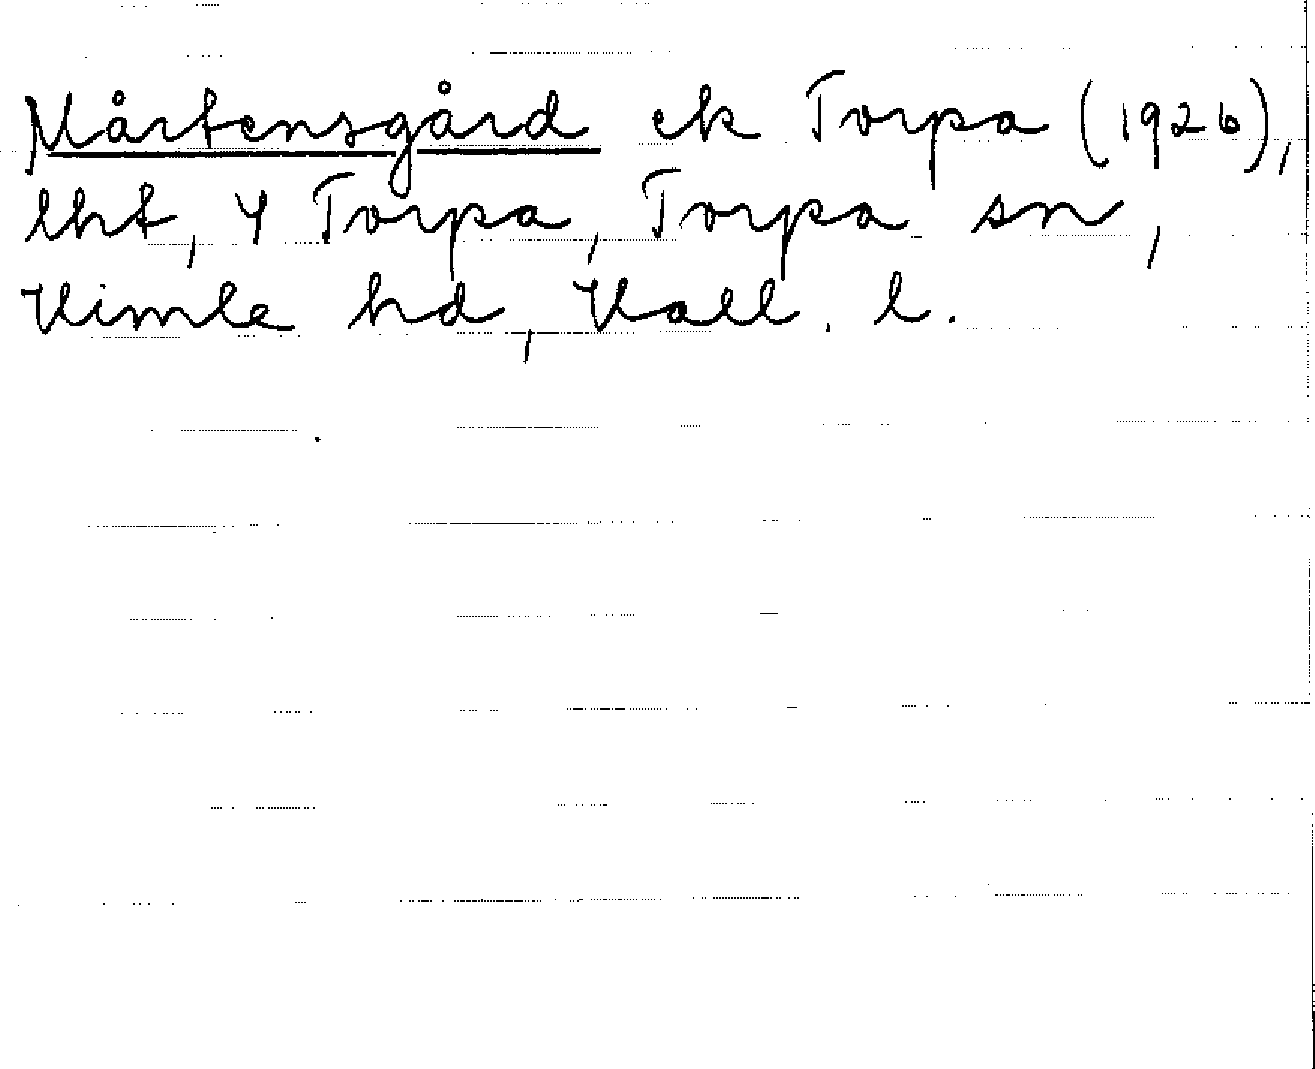 Mårtensgård ek Torpa (1926),
lht, 4 Torpa, Torpa sn,
Himle hd, Hall. l.